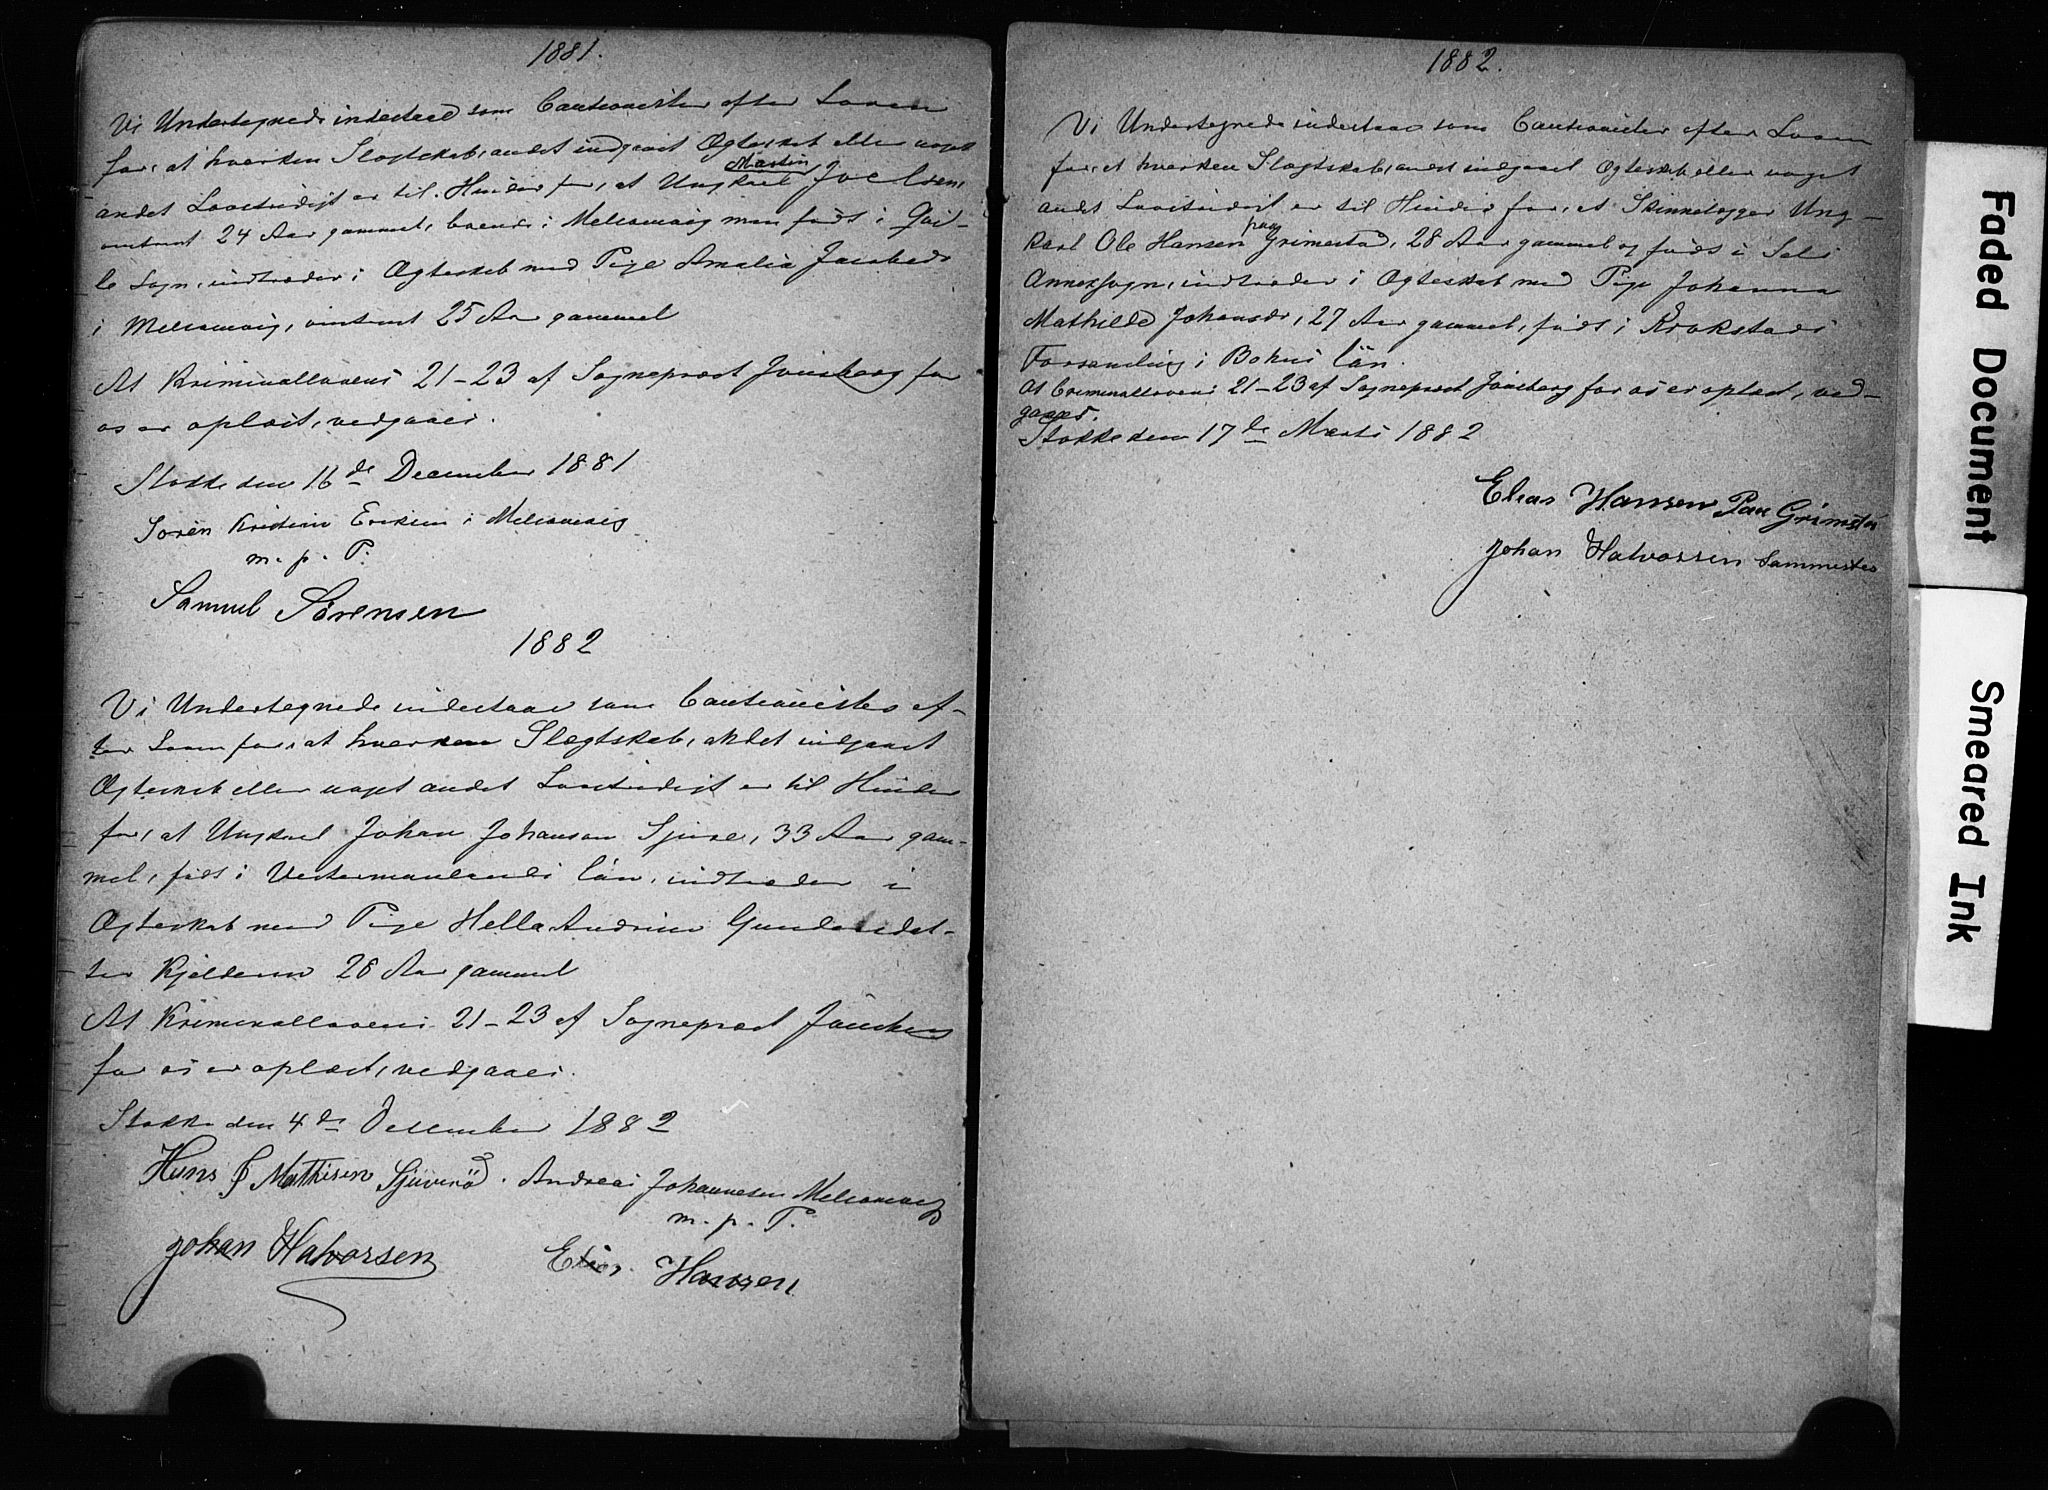 1881.
Vi Undertegnede indestaae som Cautionister efter Loven
for, at hverken Slægtskab, andet indgaaet Ægteskab eller noget
Martin
andet Lovstridigt er til Hinder for, at Ungkarl Joelsen,
omtrent 24 Aar gammel, boende i Melsomvig men født i
Sogn, indtræder i Ægteskab med Pige Amalia Jacobsdr
i Melsomvig, omtrent 25 Aar gammel
At Kriminallovens 21-23 af Sogneprest Jonsberg for
os er oplæst, vedgaaes.
Stokke den 16de December 1881
Soren Kristian Eriksen i Melsomvig
m. p. P.
Samuel Sørensen
1882
Vi Undertegnede indestaae som Cautionister ef-
ter Loven for, at hverken Slægtskab, andet indgaaet
Ægteskab eller noget andet Lovstridigt er til Hinder
for, at Ungkarl Johan Johanson 33 Aar gam-
mel, født i Vestermanlands län, indtræder i
Ægteskab med Pige Hella Andrine Gundersdat-
ter 28 Aar gammel
At Kriminallovens 21-23 af Sogneprest Jonsberg
for os er oplæst, vedgaaes.
Stokke den 4de December 1882
Hans J Mathisen Sjuverød. Andreas Johannesen Melsomvig
m. p. P.
Johan Halvorsen Elias Hansen
1882.
Vi Undertegnede indestaae som Cautionister efter Loven
for, at hverken Slægtskab, andet indgaaet Ægteskab eller noget
andet Lovstridigt er til Hinder for, at Skinnelægger Ung-
paa
karl Ole Hansen Grimestad, 28 Aar gammel og født i
Annexsogn, indtræder i Ægteskab med Pige Johanna
Mathilde Johansdr, 27 Aar gammel, født i Krokstads
Forsamling i Bohus län.
At Criminallovens 21-23 af Sogneprest Jonsberg for os er oplæst, ved-
gaaes.
Stokke den 17de Marts 1882
Elias Hansen Paa Grimsta
Johan Halvorsen Sammested
Faded Document
Smeared Ink